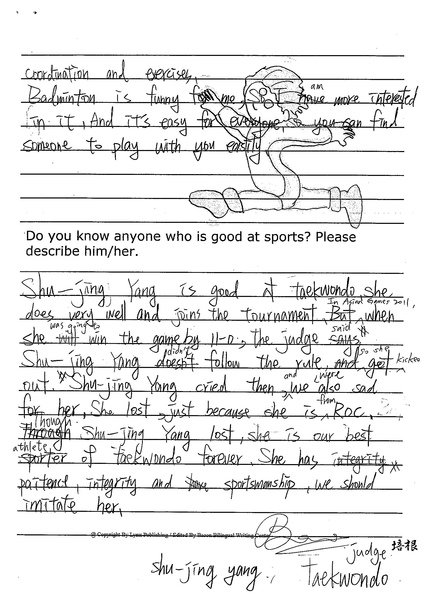 coordination and exercises.
Badminton is funny for me. So I am have more interested
in it, And it's easy for everyone, so you can find
someone to play with you easily
Do you know anyone who is good at sports? Please
describe him/her.
Shu-jing Yang is good at taekwondo, she
does very well and joins the tournament. But when In Asind Games 2011,
she was going to will win the game by 11-0, the judge said says
Shu-jing Yang didn't doesn't follow the rule, and so she get kicked
out. Shu-jing Yang cried then, and we were also sad
for her, She lost, just because she is from ROC.
Though Through Shu-jing Yang lost, she is our best
athlete sporter of taekwondo forever. She has integrity
paitence, integrity and sportsmanship, we should
imitate her.
@ Copyright By: Lynn Publishing / Edited By Bacon Bilingual Writing Center
judge 培根
shu-jing yang. Taekwondo